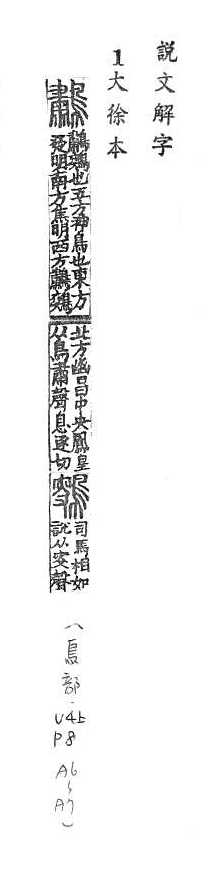 説文解字
1大徐本
鷫
鷫鷞也五方神鳥也東方
發明南方焦明西方鷫鷞
北方幽昌中央鳳皇
从鳥肅聲息逐切
司馬相如
說从叜聲
(鳥部.
V4上
P8
A6
~
A7)